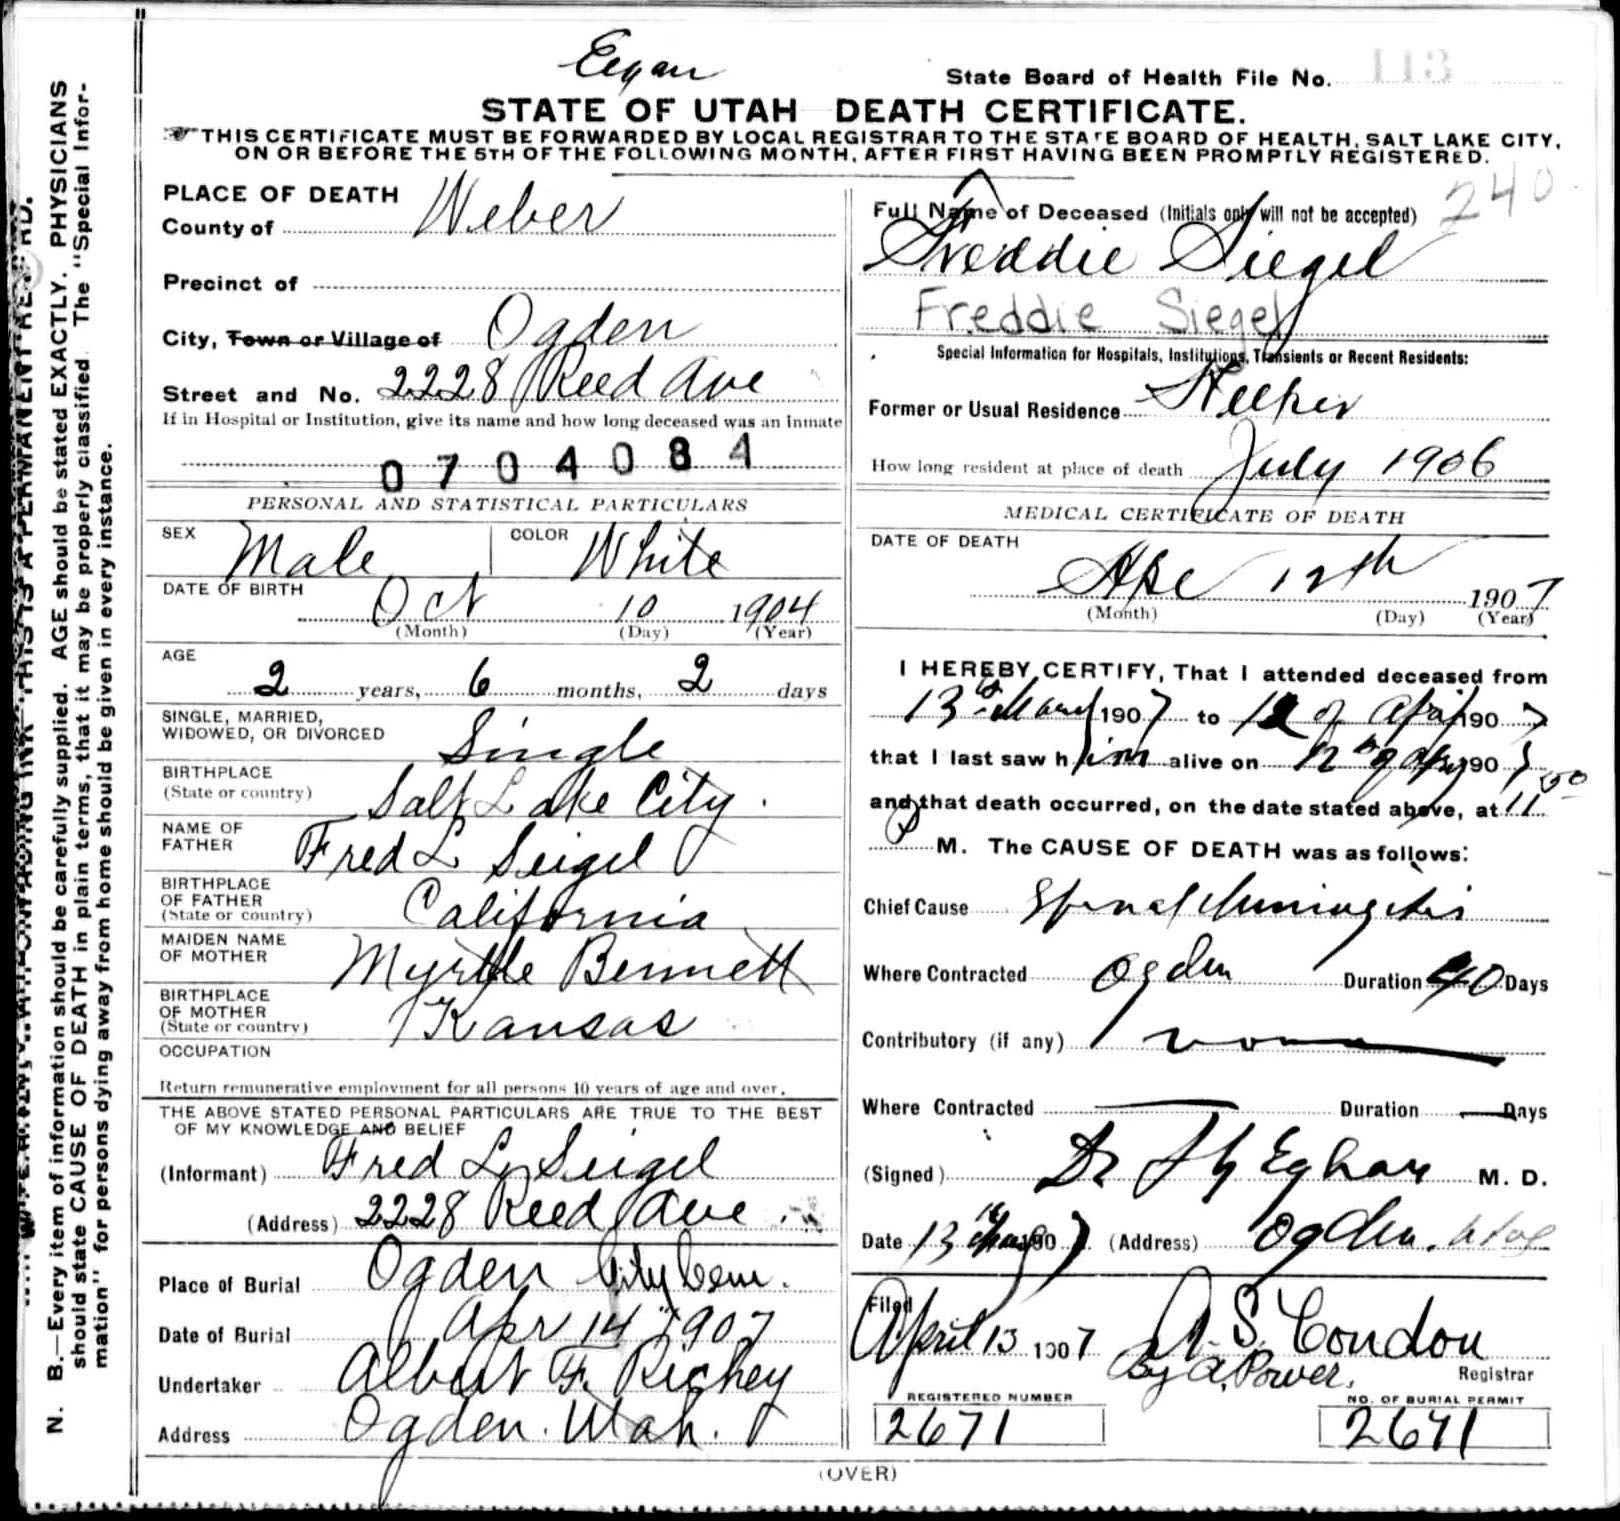 Eegan
State Board of Health File No. 113
STATE OF UTAH DEATH CERTIFICATE.
THIS CERTIFICATE MUST BE FORWARDED BY LOCAL REGISTRAR TO THE STATE BOARD OF HEALTH, SALT LAKE CITY,
ON OR BEFORE THE 5TH OF THE FOLLOWING MONTH, AFTER FIRST HAVING BEEN PROMPTLY REGISTERED.
240
PLACE OF DEATH
County of Weber
Precinct of
City, Town or Village of Ogden
Street and No. 2228 Reed Ave
If in Hospital or Institution, give its name and how long deceased was an inmate
0704084
PERSONAL AND STATISTICAL PARTICULARS
SEX Male COLOR White
DATE OF BIRTH
Oct 10 1904
(Month) (Day) (Year)
AGE
2 years, 6 months, 2 days
SINGLE, MARRIED,
WIDOWED, OR DIVORCED Single
BIRTHPLACE
(State or country) Salt Lake City.
NAME OF
FATHER Fred L Seigel
BIRTHPLACE
OF FATHER
(State or country) California
MAIDEN NAME
OF MOTHER Myrtle Bennett
BIRTHPLACE
OF MOTHER
(State or country) Kansas
OCCUPATION
Return remunerative employment for all persons 10 years of age and over.
THE ABOVE STATED PERSONAL PARTICULARS ARE TRUE TO THE BEST
OF MY KNOWLEDGE AND BELIEF
(Informant) Fred L Seigel
(Address) 2228 Reed Ave.
Place of Burial Ogden City Cem.
Date of Burial Apr 14 1907
Undertaker Albert F. Richey
Address Ogden. Utah.
Full Name of Deceased (Initials only will not be accepted)
Freddie Siegel
Freddie Siegel
Special Information for Hospitals, Institutions, Transients or Recent Residents:
Former or Usual Residence
How long resident at place of death July 1906
MEDICAL CERTIFICATE OF DEATH
DATE OF DEATH
12th 1907
(Month) (Day) (Year)
I HEREBY CERTIFY, That I attended deceased from
13 1907 to 12 of April 1907
that I last saw him alive on 12 of 1907
and that death occurred, on the date stated above, at 11.50
P M. The CAUSE OF DEATH was as follows:
Chief Cause Spinal Miningitis
Where Contracted Ogden Duration 40 Days
Contributory (if any) none
Where Contracted Duration Days
(Signed) Dr M. D.
Date 13 1907 (Address) Ogden. Utah
Filed
April 13 1907 A. S. Condon
By A. Power. Registrar
REGISTERED NUMBER NO. OF BURIAL PERMIT
2671 2671
(OVER)
N. B.—Every item of information should be carefully supplied. AGE should be stated EXACTLY. PHYSICIANS
should state CAUSE OF DEATH in plain terms, that it may be properly classified. The "Special Infor-
mation" for persons dying away from home should be given in every instance.